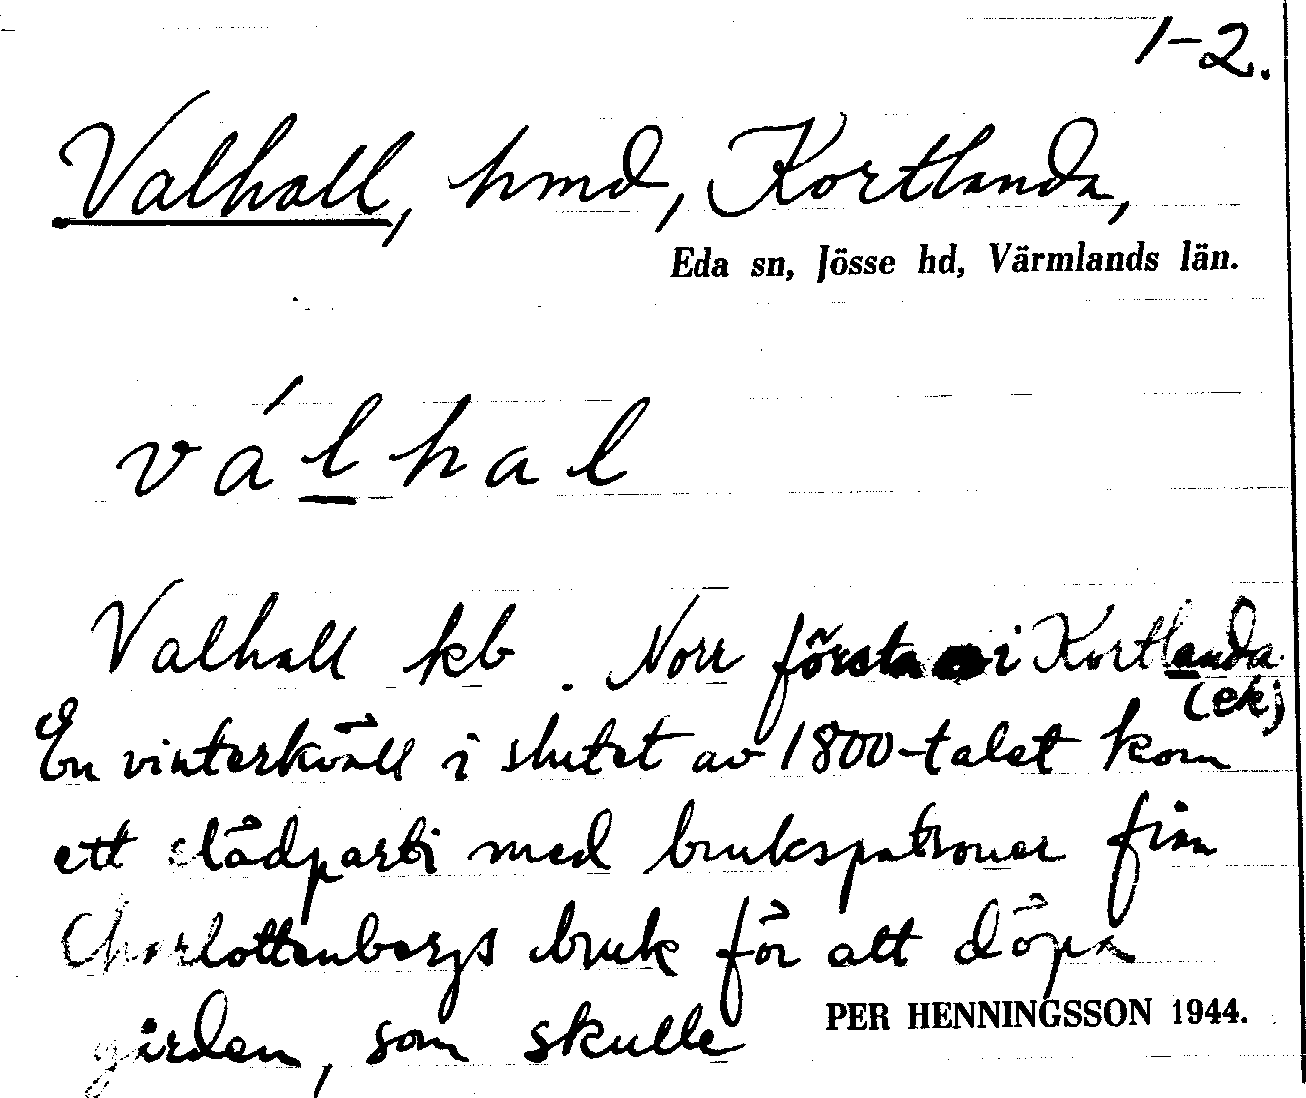 1-2.
Valhall, hmd, Kortlanda,
Eda sn, Jösse hd, Värmlands län.
válhal
Valhall kb. Norr första i Kortlanda
(ek)
En vinterkväll i slutet av 1800-talet kom
ett slädparti med brukspatroner från
Charlottenbergs bruk för att döpa
gården, som skulle
PER HENNINGSSON 1944.